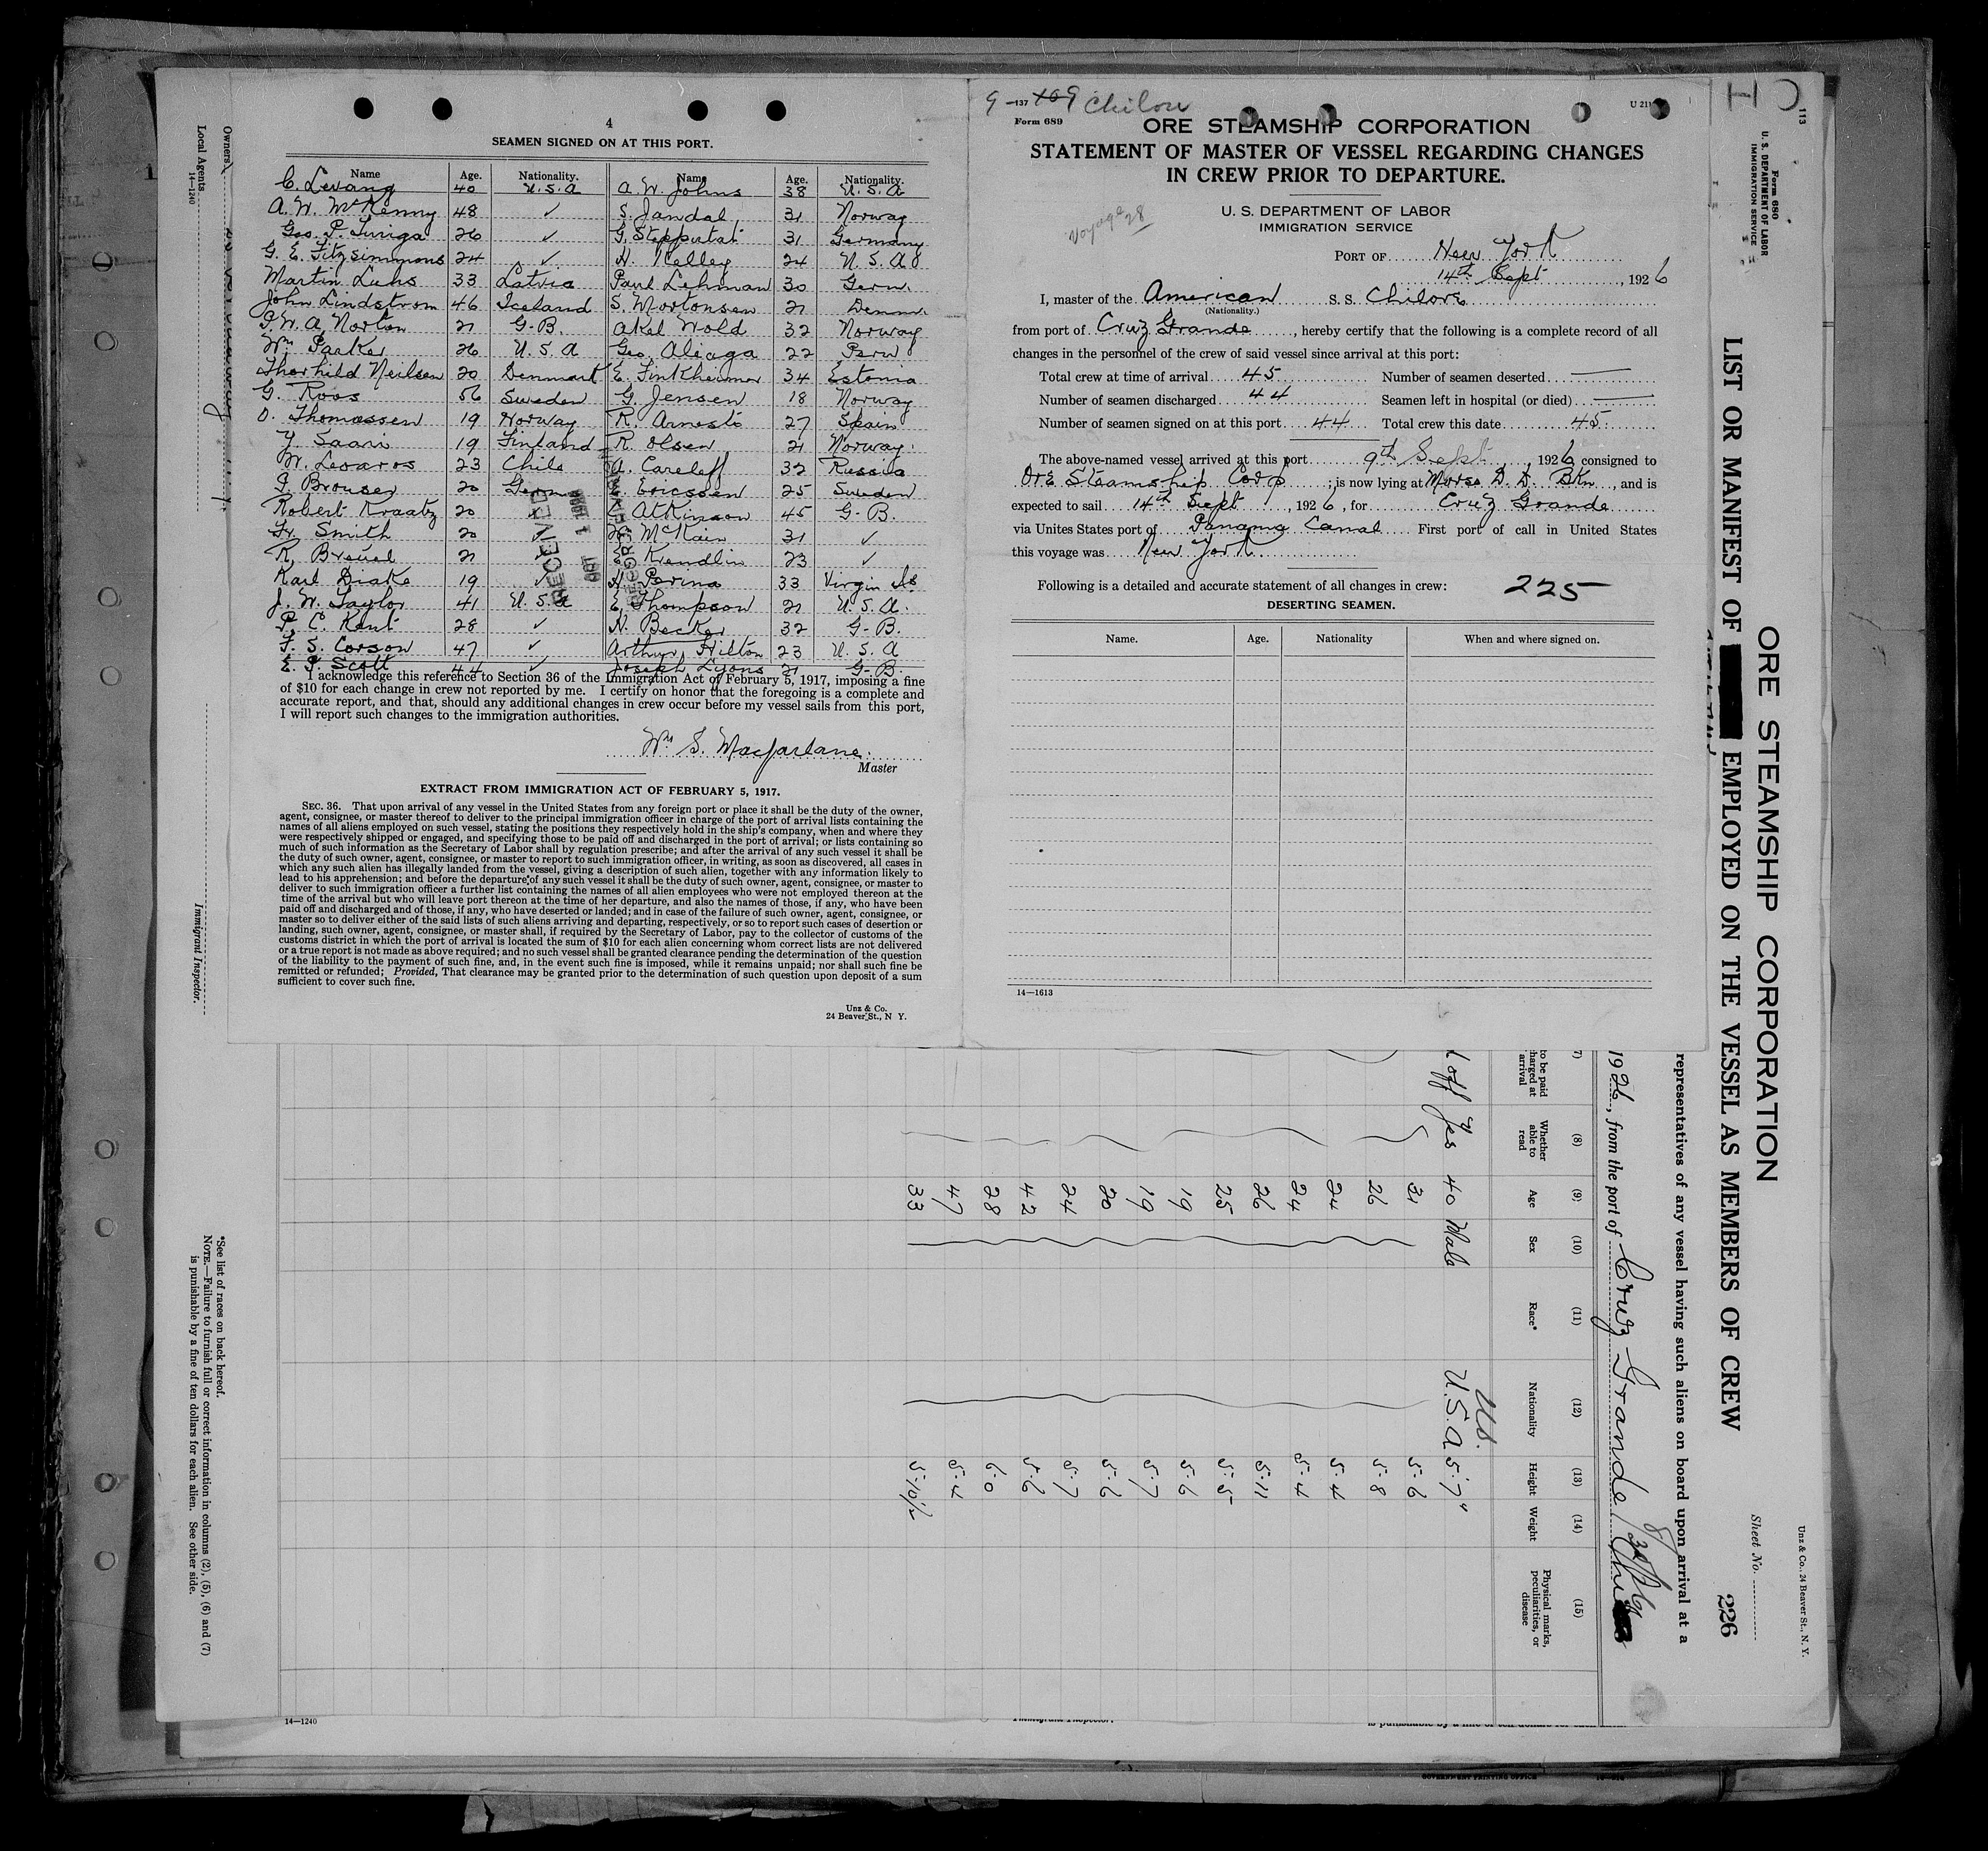 4
SEAMEN SIGNED ON AT THIS PORT.
Name Age. Nationality. Name Age. Nationality.
C. Levang 40 U.S.A A. W. Johns 38 U.S.A
A. W. McKenny 48 ✓ S. Jandal 31 Norway
Geo. P. 26 ✓ G. Stepputat 31 Germany
G. E. Fitzsimmons 24 ✓ H. Kelley 24 U.S.A
Martin Luhs 33 Latvia Paul Lehman 30 Germ.
John Lindstrom 46 Iceland S. Mortonsen 21 Denm.
G. W. A. Norton 21 G-B. Akel Wold 32 Norway
Wm Parker 26 U.S.A Geo. Aliaga 22 Peru
Thorhild Neilsen 20 Denmark E. 34 Estonia
G. Roos 56 Sweden G. Jensen 18 Norway
O. Thomassen 19 Norway R. Arnesto 27 Spain
Y. Saari 19 Finland R. Olsen 21 Norway.
23 Chile A. Careleff 32 Russia
Brouser 20 Germ Ericssen 25 Sweden
Robert Kraatz 20 Atkinson 45 G-B.
Fr. Smith 20 McKain 31 ✓
R. Breuel 21 Krendlin 23 ✓
Karl Diake 19 ✓ H. Parina 33 Virgin Is
J. W. Taylor 41 U.S.A E. Thompson 21 U.S.A.
P. C. Kent 28 ✓ H. Becker 32 G-B.
F. S. Corson 47 ✓ Arthur Hilton 23 U.S.A
E. P. Scott 44 ✓ Joseph Lyons 21 G-B.
RECEIVED
I acknowledge this reference to Section 36 of the Immigration Act of February 5, 1917, imposing a fine
of $10 for each change in crew not reported by me. I certify on honor that the foregoing is a complete and
accurate report, and that, should any additional changes in crew occur before my vessel sails from this port,
I will report such changes to the immigration authorities.
Wm S. Macfarlane.
Master
EXTRACT FROM IMMIGRATION ACT OF FEBRUARY 5, 1917.
SEC. 36. That upon arrival of any vessel in the United States from any foreign port or place it shall be the duty of the owner,
agent, consignee, or master thereof to deliver to the principal immigration officer in charge of the port of arrival lists containing the
names of all aliens employed on such vessel, stating the positions they respectively hold in the ship's company, when and where they
were respectively shipped or engaged, and specifying those to be paid off and discharged in the port of arrival; or lists containing so
much of such information as the Secretary of Labor shall by regulation prescribe; and after the arrival of any such vessel it shall be
the duty of such owner, agent, consignee, or master to report to such immigration officer, in writing, as soon as discovered, all cases in
which any such alien has illegally landed from the vessel, giving a description of such alien, together with any information likely to
lead to his apprehension; and before the departure of any such vessel it shall be the duty of such owner, agent, consignee, or master to
deliver to such immigration officer a further list containing the names of all alien employees who were not employed thereon at the
time of the arrival but who will leave port thereon at the time of her departure, and also the names of those, if any, who have been
paid off and discharged and of those, if any, who have deserted or landed; and in case of the failure of such owner, agent, consignee, or
master so to deliver either of the said lists of such aliens arriving and departing, respectively, or so to report such cases of desertion or
landing, such owner, agent, consignee, or master shall, if required by the Secretary of Labor, pay to the collector of customs of the
customs district in which the port of arrival is located the sum of $10 for each alien concerning whom correct lists are not delivered
or a true report is not made as above required; and no such vessel shall be granted clearance pending the determination of the question
of the liability to the payment of such fine, and, in the event such fine is imposed, while it remains unpaid; nor shall such fine be
remitted or refunded; Provided, That clearance may be granted prior to the determination of such question upon deposit of a sum
sufficient to cover such fine.
Unz & Co.
24 Beaver St., N Y.
9 —137 109 Chilou
Form 689
U 21
ORE STEAMSHIP CORPORATION
STATEMENT OF MASTER OF VESSEL REGARDING CHANGES
IN CREW PRIOR TO DEPARTURE.
U. S. DEPARTMENT OF LABOR
IMMIGRATION SERVICE
Voyage 28
PORT OF New York
14th Sept, 1926
I, master of the American S. S. Chilore
(Nationality.)
from port of Cruz Grande, hereby certify that the following is a complete record of all
changes in the personnel of the crew of said vessel since arrival at this port:
Total crew at time of arrival 45 Number of seamen deserted —
Number of seamen discharged 44 Seamen left in hospital (or died) —
Number of seamen signed on at this port 44 Total crew this date 45
The above-named vessel arrived at this port 9th Sept 1926 consigned to
Ore Steamship Corp; is now lying at Morse D. D. Bkn, and is
expected to sail 14th Sept, 1926, for Cruz Grande
via Unites States port of Panama Canal First port of call in United States
this voyage was New York.
Following is a detailed and accurate statement of all changes in crew: 225
DESERTING SEAMEN.
Name. Age. Nationality When and where signed on.
14—1613
113
Form 680
U. S. DEPARTMENT OF LABOR
IMMIGRATION SERVICE
ORE STEAMSHIP CORPORATION
LIST OR MANIFEST OF EMPLOYED ON THE VESSEL AS MEMBERS OF CREW
Unz & Co., 24 Beaver St., N. Y.
Sheet No.
226
representatives of any vessel having such aliens on board upon arrival at a
1926, from the port of Cruz Grande/Chile
(8) (9) (10) (11) (12) (13) (14) (15)
to be paid
arrival
Whether able to read
Age
Sex
Race*
Nationality
Height
Weight
Physical marks, peculiarities, or disease
off Yes 40 Male U.S.A 5'7"
US.
31 5-6
26 5-8
24 5-4
24 5-4
26 5-11
25 5-5
19 5-6
19 5-7
20 5-6
24 5-7
42 5-6
28 6-0
47 5-4
33 5-10½
Owners
Local Agents
14—1240
Immigrant Inspector.
*See list of races on back hereof.
NOTE.—Failure to furnish full or correct information in columns (2), (5), (6) and (7)
is punishable by a fine of ten dollars for each alien. See other side.
14—1240
GOVERNMENT PRINTING OFFICE